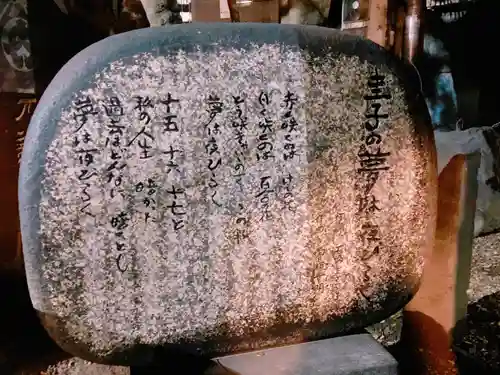 圭子の夢は夜ひらく
赤く咲くのは けしの花
白く咲くのは 百合の花
どう咲きゃいいの この私
夢は夜ひらく
十五 十六 十七と
私の人生 暗かった
過去はどんなに 暗くとも
夢は夜ひらく